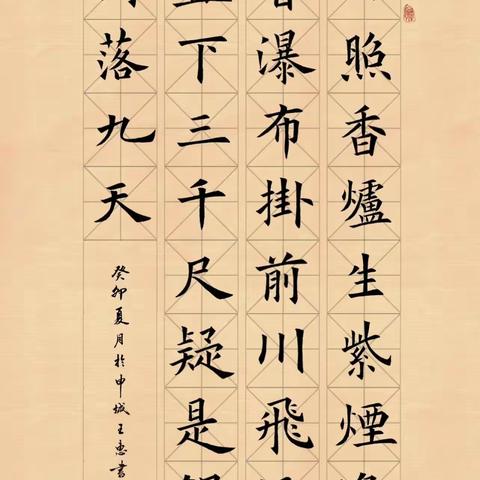 照香爐生紫煙
瀑布掛前川飛
下三千尺疑是
落九天
癸卯夏月於申城王惠書